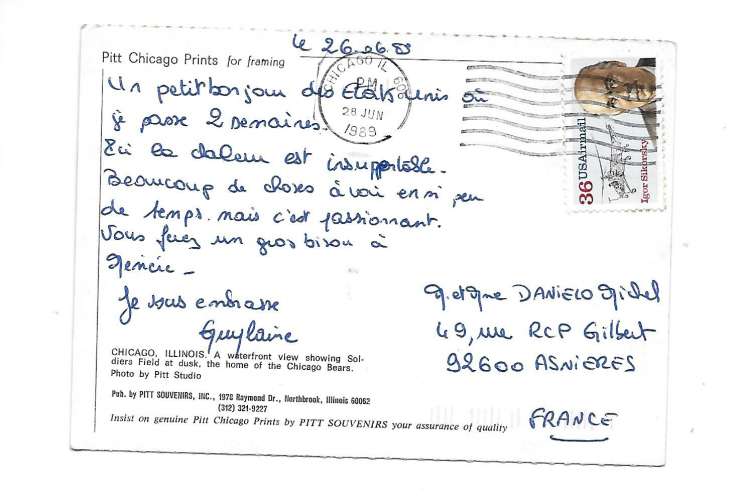 Pitt Chicago Prints for framing
le 26.06.89
CHICAGO IL 606
PM
28 JUN
1989
Un petit bonjour des Etats Unis où
je passe 2 semaines.
Ici la chaleur est insupportable.
Beaucoup de choses à voir en si peu
de temps. mais c'est passionnant.
Vous ferez un gros bisou à
Je vous embrasse
Guylaine
36 USAirmail
Igor Sikorsky
M. et Mme DANIELO Michel
49, rue RCP Gilbert
92600 ASNIERES
FRANCE
CHICAGO, ILLINOIS. A waterfront view showing Sol-
diers Field at dusk, the home of the Chicago Bears.
Photo by Pitt Studio
Pub. by PITT SOUVENIRS, INC., 1976 Raymond Dr., Northbrook, Illinois 60062
(312) 321-9227
Insist on genuine Pitt Chicago Prints by PITT SOUVENIRS your assurance of quality